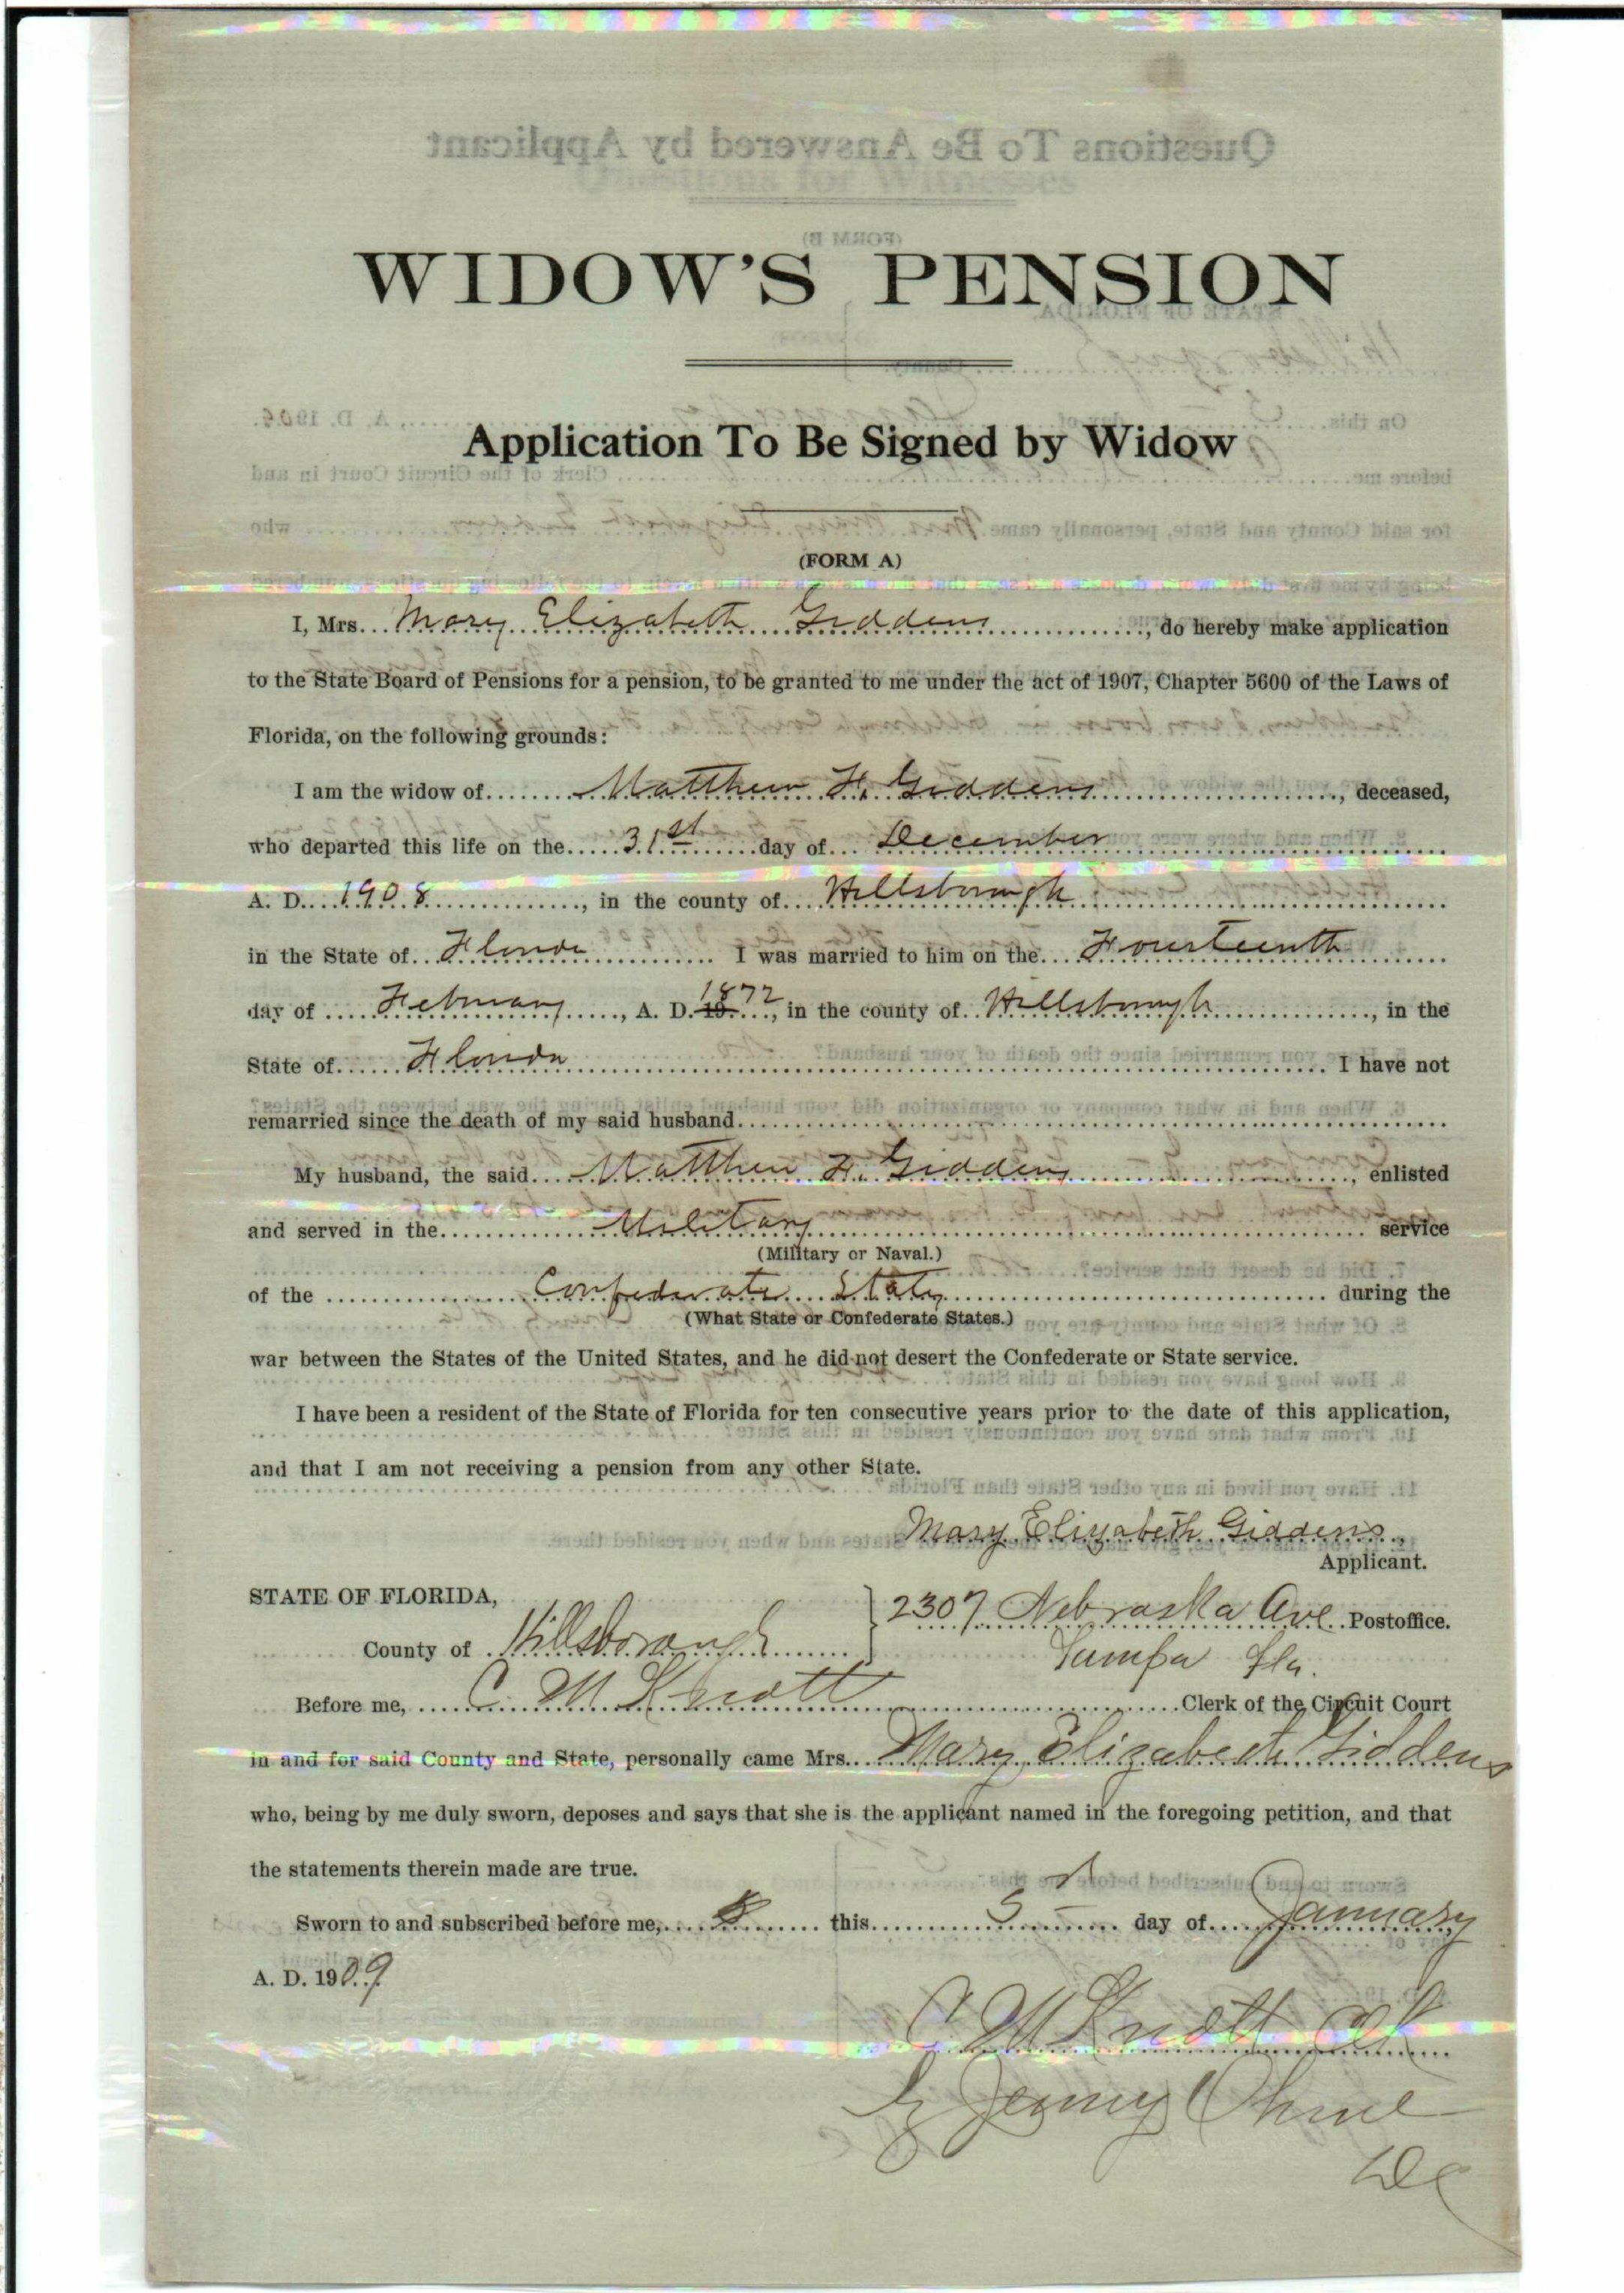 WIDOW'S PENSION
Application To Be Signed by Widow
(FORM A)
I, Mrs. Mary Elizabeth Giddens, do hereby make application
to the State Board of Pensions for a pension, to be granted to me under the act of 1907, Chapter 5600 of the Laws of
Florida, on the following grounds:
I am the widow of Matthew F. Giddens, deceased,
who departed this life on the 31st day of December
A. D. 1908, in the county of Hillsborough
in the State of Florida I was married to him on the Fourteenth
day of February, A. D. 1872, in the county of Hillsborough, in the
State of Florida I have not
remarried since the death of my said husband
My husband, the said Matthew F. Giddens, enlisted
and served in the Military service
(Military or Naval.)
of the Confederate States during the
(What State or Confederate States.)
war between the States of the United States, and he did not desert the Confederate or State service.
I have been a resident of the State of Florida for ten consecutive years prior to the date of this application,
and that I am not receiving a pension from any other State.
Mary Elizabeth Giddens
Applicant.
STATE OF FLORIDA,
County of Hillsborough
2307 Nebraska Ave Postoffice.
Tampa Fla.
Before me, C. M. Knott Clerk of the Circuit Court
in and for said County and State, personally came Mrs. Mary Elizabeth Giddens
who, being by me duly sworn, deposes and says that she is the applicant named in the foregoing petition, and that
the statements therein made are true.
Sworn to and subscribed before me, this 5 day of January
A. D. 1909
C M Knott Clk
By
DC